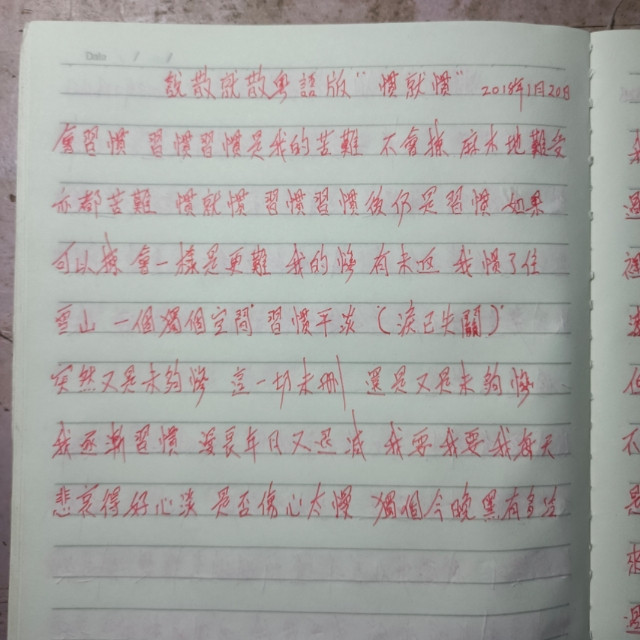 Date / /
說散就散粵語版"慣就慣" 2018年1月20日
會習慣 習慣習慣是我的苦難 不會揀 麻木地難受
亦都苦難 慣就慣 習慣習慣後仍是習慣 如果
可以揀 會一樣是更難 我的悔 有未返 我慣了住
雪山 一個獨個空間 習慣平淡 (淚已失關)
突然又是未夠悔 這一切未刪 還是又是未夠悔
我逐漸習慣 漫長年月又遞減 我要我要我每天
悲哀得好心淡 是否傷心太慣 獨個今晚黑有多